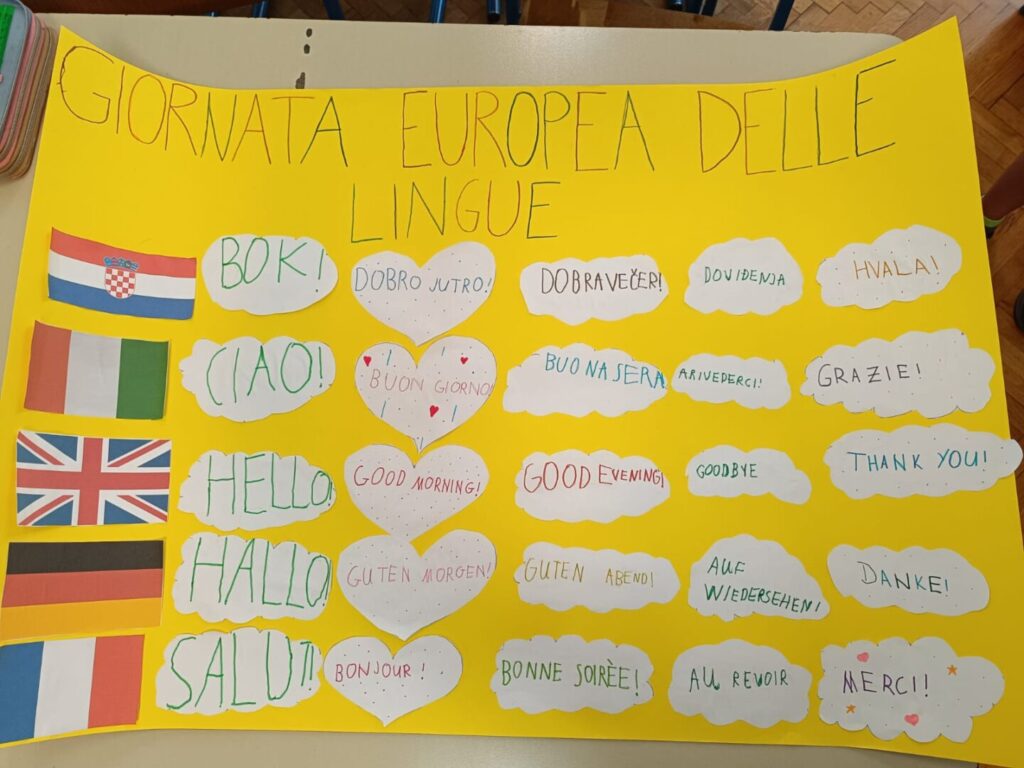 GIORNATA EUROPEA DELLE
LINGUE
BOK!
DOBRO JUTRO!
DOBRAVEČER!
DOVIĐENJA
HVALA!
CIAO!
BUON GIORNO!
BUONASERA
ARIVEDERCI!
GRAZIE!
HELLO!
GOOD MORNING!
GOOD EVENING!
GOODBYE
THANK YOU!
HALLO!
GUTEN MORGEN!
GUTEN ABEND!
AUF
WIEDERSEHEN!
DANKE!
SALUT!
BONJOUR!
BONNE SOIRÈE!
AU REVOIR
MERCI!